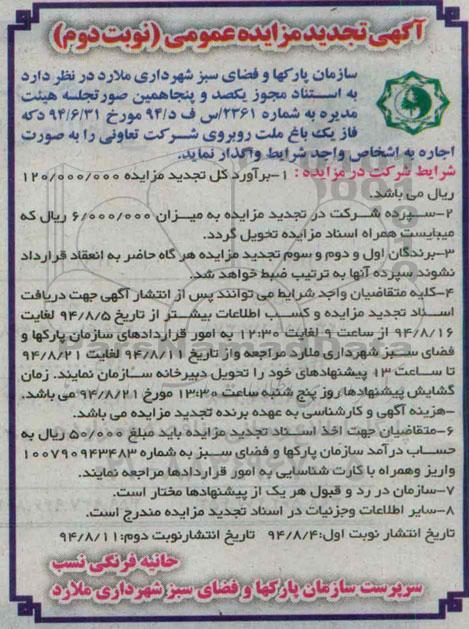 آگهی تجدید مزایده عمومی (نوبت دوم)
سازمان پارکها و فضای سبز شهرداری ملارد در نظر دارد
به استناد مجوز یکصد و پنجاهمین صورتجلسه هیئت
مدیره به شماره ۲۳۶۱/س ف د/۹۴ مورخ ۹۴/۶/۳۱ دکه
فاز یک باغ ملت روبروی شرکت تعاونی را به صورت
اجاره به اشخاص واجد شرایط واگذار نماید.
شرایط شرکت در مزایده : ۱-برآورد کل تجدید مزایده ۱۲۰/۰۰۰/۰۰۰
ریال می باشد.
۲-سپرده شرکت در تجدید مزایده به میزان ۶/۰۰۰/۰۰۰ ریال که
میبایست همراه اسناد مزایده تحویل گردد.
۳-برندگان اول و دوم و سوم تجدید مزایده هر گاه حاضر به انعقاد قرارداد
نشوند سپرده آنها به ترتیب ضبط خواهد شد.
۴-کلیه متقاضیان واجد شرایط می توانند پس از انتشار آگهی جهت دریافت
اسناد تجدید مزایده و کسب اطلاعات بیشتر از تاریخ ۹۴/۸/۵ لغایت
۹۴/۸/۱۶ از ساعت ۹ لغایت ۱۲:۳۰ به امور قراردادهای سازمان پارکها و
فضای سبز شهرداری ملارد مراجعه واز تاریخ ۹۴/۸/۱۱ لغایت ۹۴/۸/۲۱
تا ساعت ۱۳ پیشنهادهای خود را تحویل دبیرخانه سازمان نمایند. زمان
گشایش پیشنهادها روز پنج شنبه ساعت ۱۳:۳۰ مورخ ۹۴/۸/۲۱ می باشد.
-هزینه آگهی و کارشناسی به عهده برنده تجدید مزایده می باشد.
۶-متقاضیان جهت اخذ اسناد تجدید مزایده باید مبلغ ۵۰/۰۰۰ ریال به
حساب درآمد سازمان پارکها و فضای سبز به شماره ۱۰۰۷۹۰۹۴۳۴۸۳
واریز وهمراه با کارت شناسایی به امور قراردادها مراجعه نمایند.
۷-سازمان در رد و قبول هر یک از پیشنهادها مختار است.
۸-سایر اطلاعات وجزئیات در اسناد تجدید مزایده مندرج است.
تاریخ انتشار نوبت اول:۹۴/۸/۴ تاریخ انتشارنوبت دوم:۹۴/۸/۱۱
حانیه فرنگی نسب
سرپرست سازمان پارکها و فضای سبز شهرداری ملارد